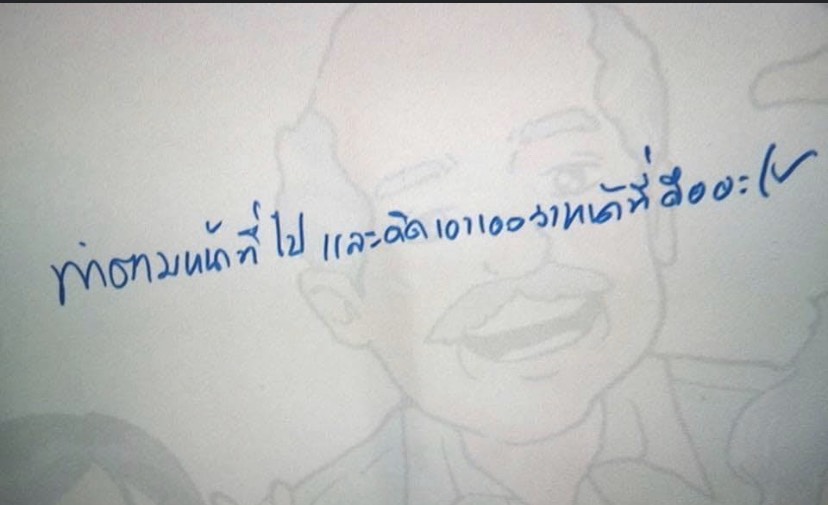 ทำตามหน้าที่ไป และคิดเอาเองว่าหน้าที่คืออะไร